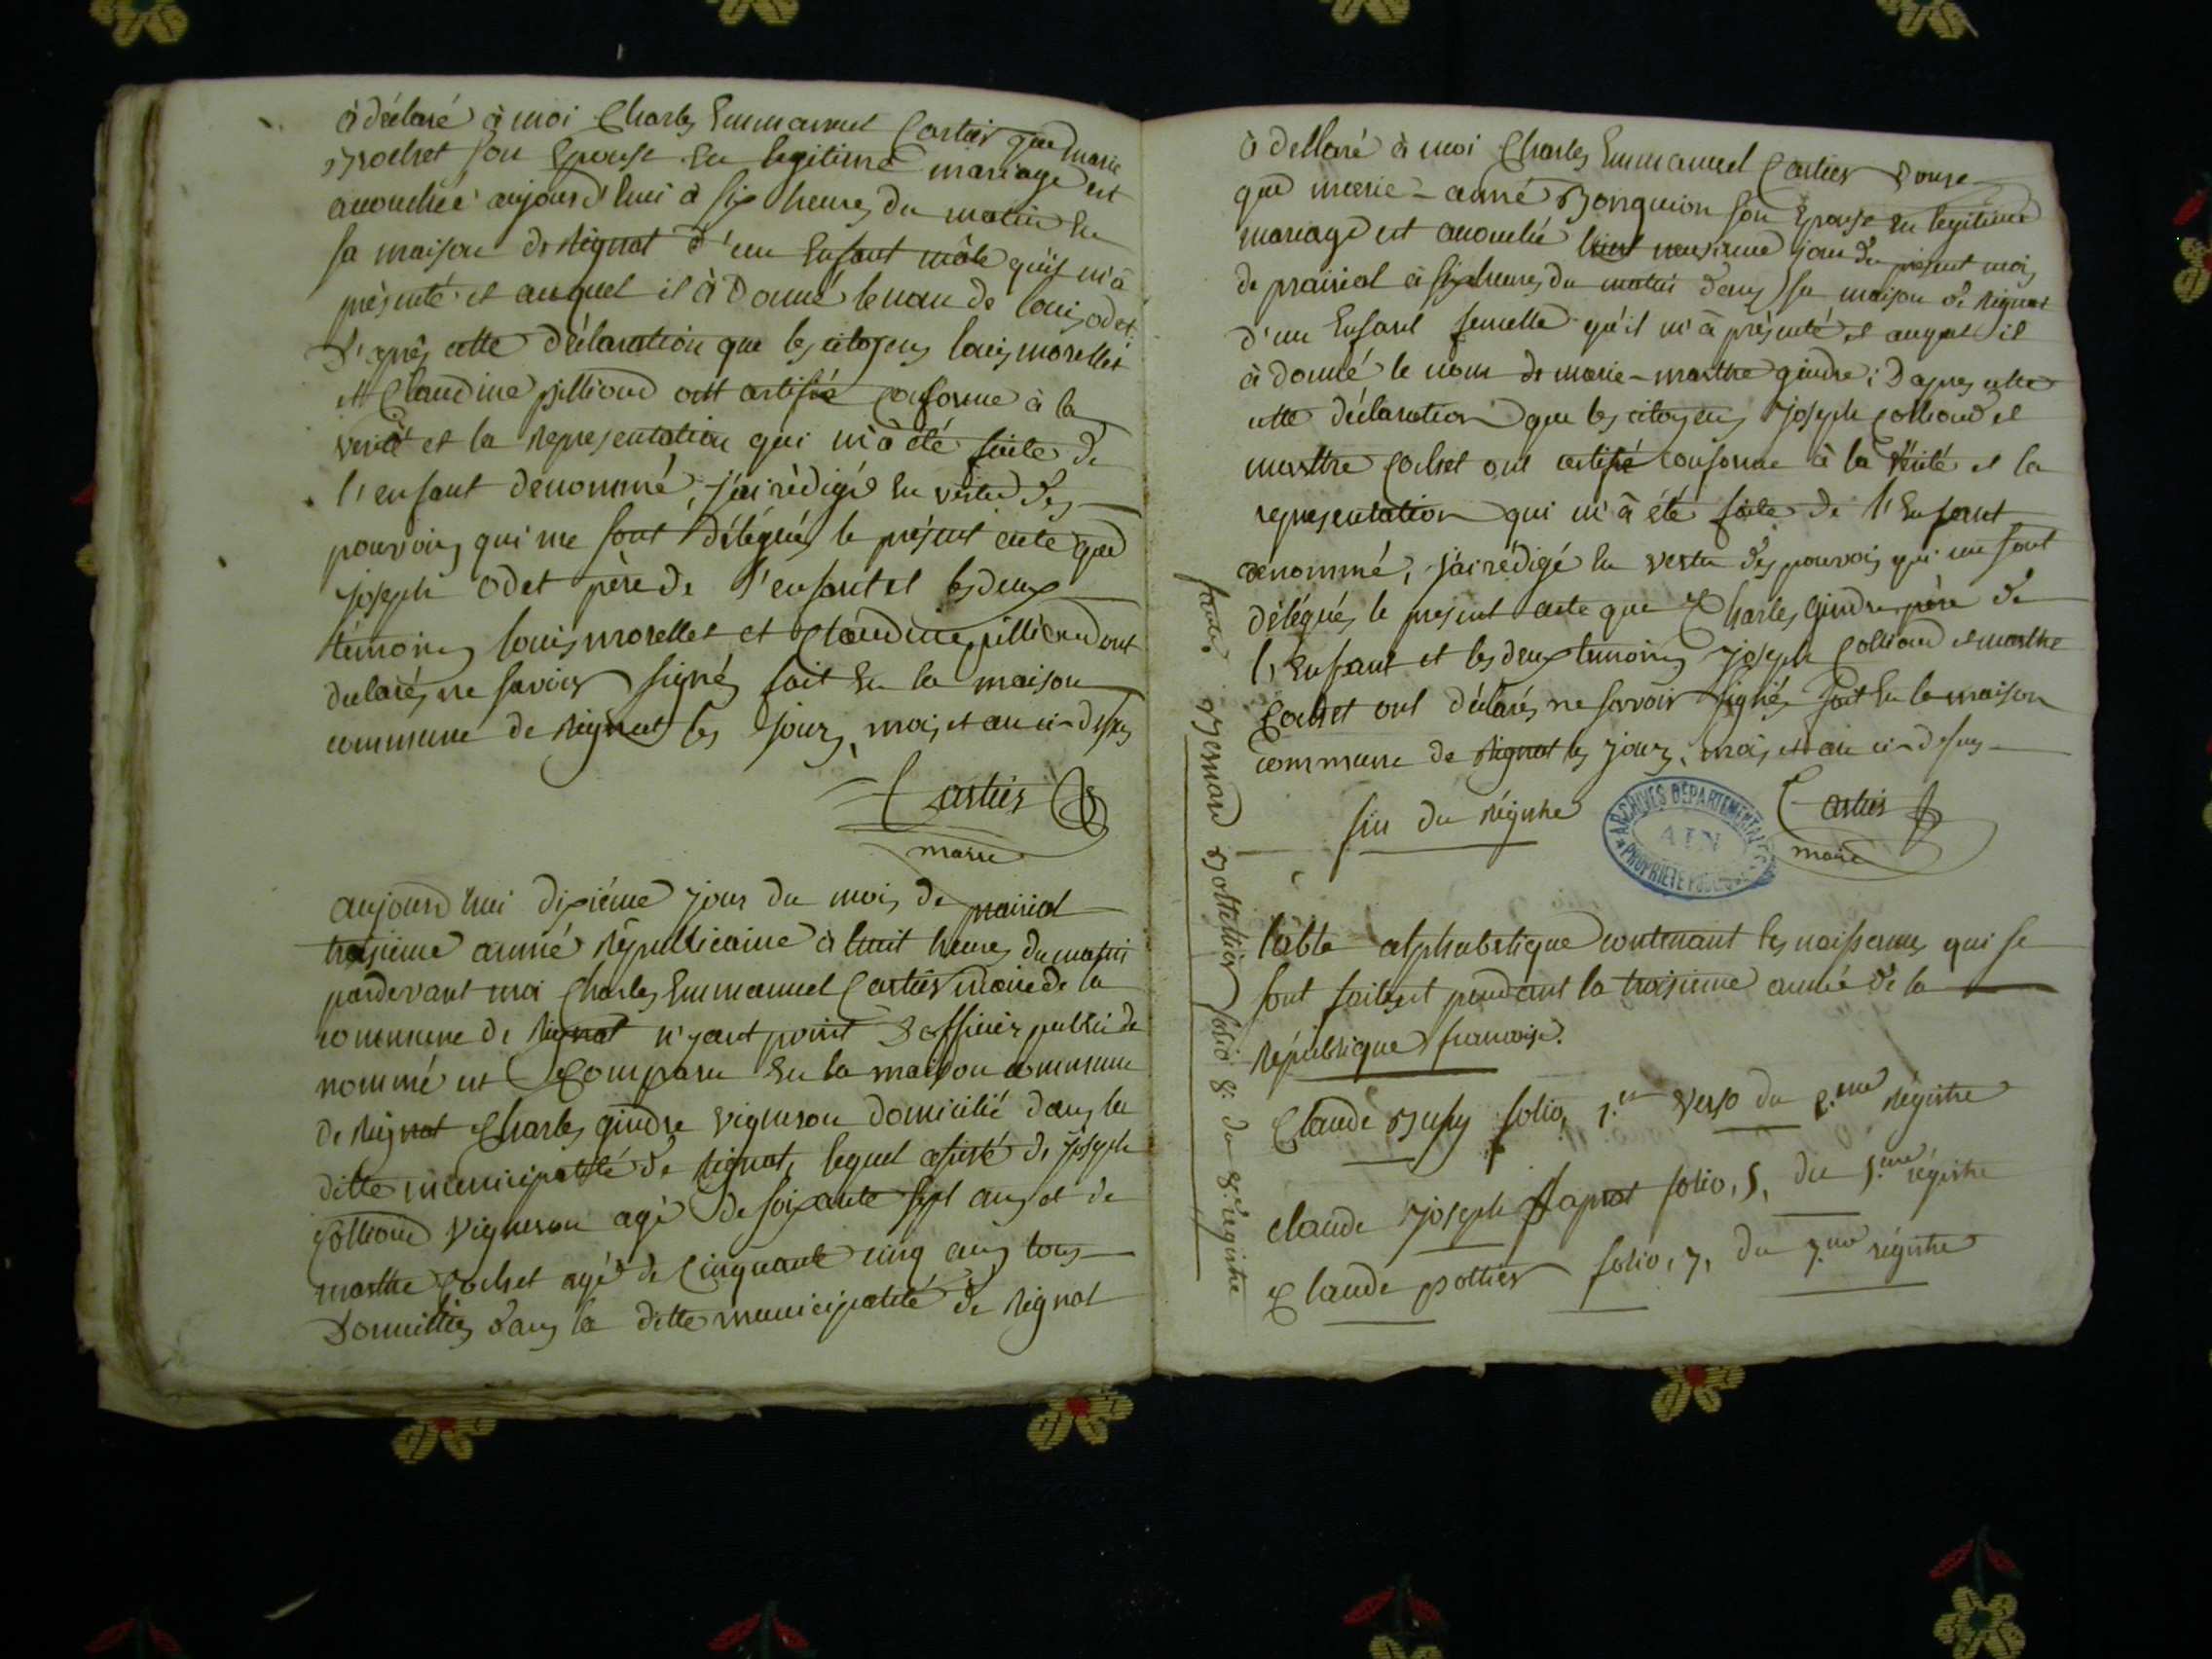 à déclaré à moi Charles Emmanuel Cartier que marie
Rochet son Epouse en legitime mariage est
accouchée aujourd'hui à six heures du matin en
sa maison de Rignat d'un Enfant mâle qu'il m'à
présenté et auquel il à Donné le nom de louis odet
D'après cette déclaration que les citoyens louis morellet
et Claudine pillioud ont certifié conforme à la
vérité et la representation qui m'à été faite de
l'enfant denommé, j'ai rédigé en vertu des
pouvoirs qui me sont délégués le présent acte que
joseph odet père de l'enfant et les deux
témoins louis morellet et Claudine pillioud ont
declarés ne savoir signés fait en la maison
commune de Rignat les jours, mois et an ci-dessus
Cartier
maire
aujourd'hui dixième jour du mois de prairial
troisieme année républicaine à huit heures du matin
pardevant moi Charles Emmanuel Cartier maire de la
commune de Rignat n'yant point D'officier public de
nommé est Comparu en la maison commune
de Rignat Charles gindre vigneron domicilié dans la
ditte municipalité de Rignat, lequel assisté de joseph
Collioud vigneron agé de soixante sept ans et de
marthe Cochet agé de Cinquante cinq ans tous
Domiciliés dans la ditte municipalité de Rignat
à dellaré à moi Charles Emmanuel Cartier
que marie-anne son Epouse en legitime
mariage est accouchée jour du présent mois
de prairial à six heures du matin dans sa maison de Rignat
d'un Enfant femelle qu'il m'à présenté et auquel il
à donné le nom de marie-marthe gindre; D'apres cette
cette déclaration que les citoyens joseph Collioud et
marthe Cochet ont certifié conforme à la vérité et la
representation qui m'à été faite de l'Enfant
denommé, j'ai rédigé en vertu des pouvois qui me sont
délégués le present acte que Charles gindre père de
l'Enfant et les deux temoins joseph Collioud et marthe
Cochet ont déclarés ne savoir signés fait en la maison
commune de Rignat les jours, mois et an ci-dessus
fin du Régistre
Cartier
maire
ARCHIVES DÉPARTEMENTALES
AIN
PROPRIETE PUBLIQUE
table alphabetique contenant les naissances qui se
sont faites pendant la troisieme année de la
République francoise.
Claude folio, 1.er verso du 2.eme Régistre
claude joseph folio, 5, du 5.eme régistre
Claude pottier folio, 7, du 7.eme régistre
Bernard folio 8. du 8.e registre